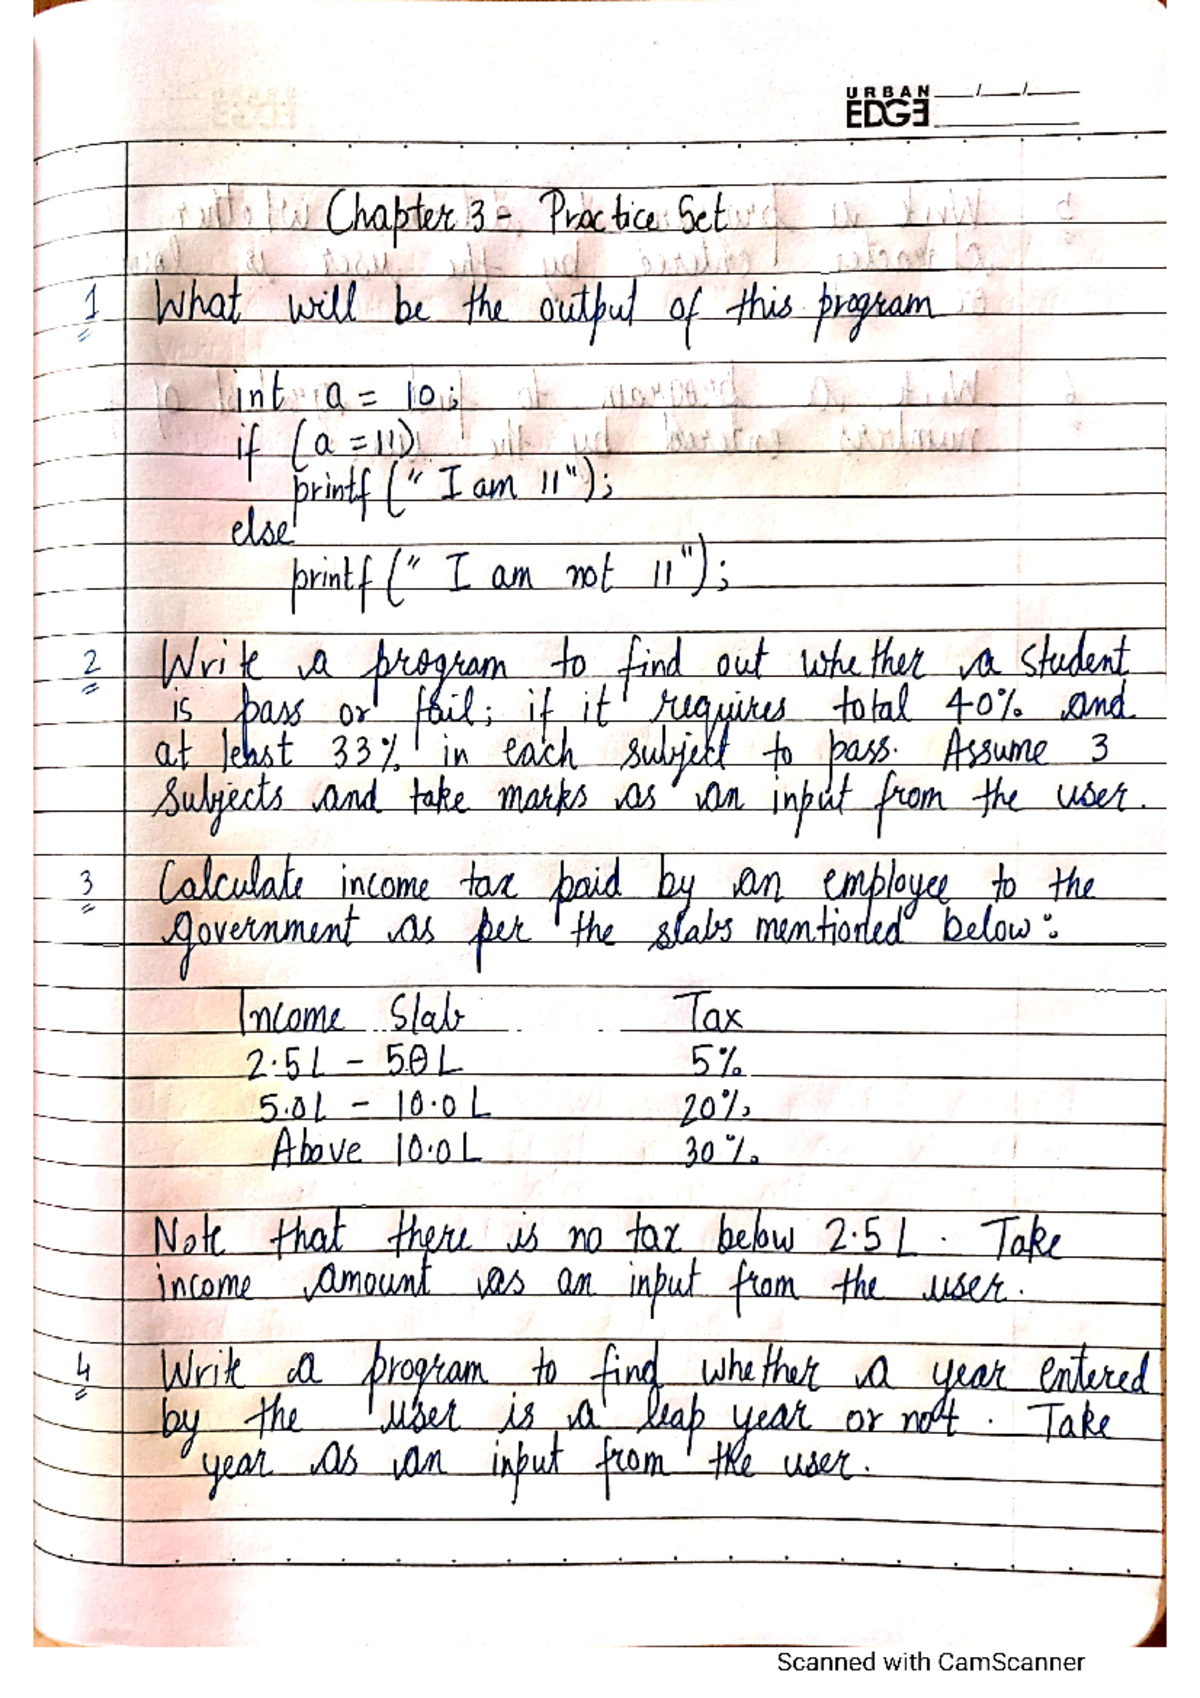 URBAN
EDGE / /
Chapter 3 - Practice Set
1 What will be the output of this program
int a = 10;
if (a = 11)
printf (" I am 11");
else
printf (" I am not 11");
2 Write a program to find out whether a student
is pass or fail; if it requires total 40% and
at least 33% in each subject to pass. Assume 3
Subjects and take marks as an input from the user.
3 Calculate income tax paid by an employee to the
government as per the slabs mentioned below:
Income Slab Tax
2.5L - 5.0L 5%
5.0L - 10.0L 20%
Above 10.0L 30%
Note that there is no tax below 2.5L. Take
income amount as an input from the user.
4 Write a program to find whether a year entered
by the user is a leap year or not. Take
year as an input from the user.
Scanned with CamScanner